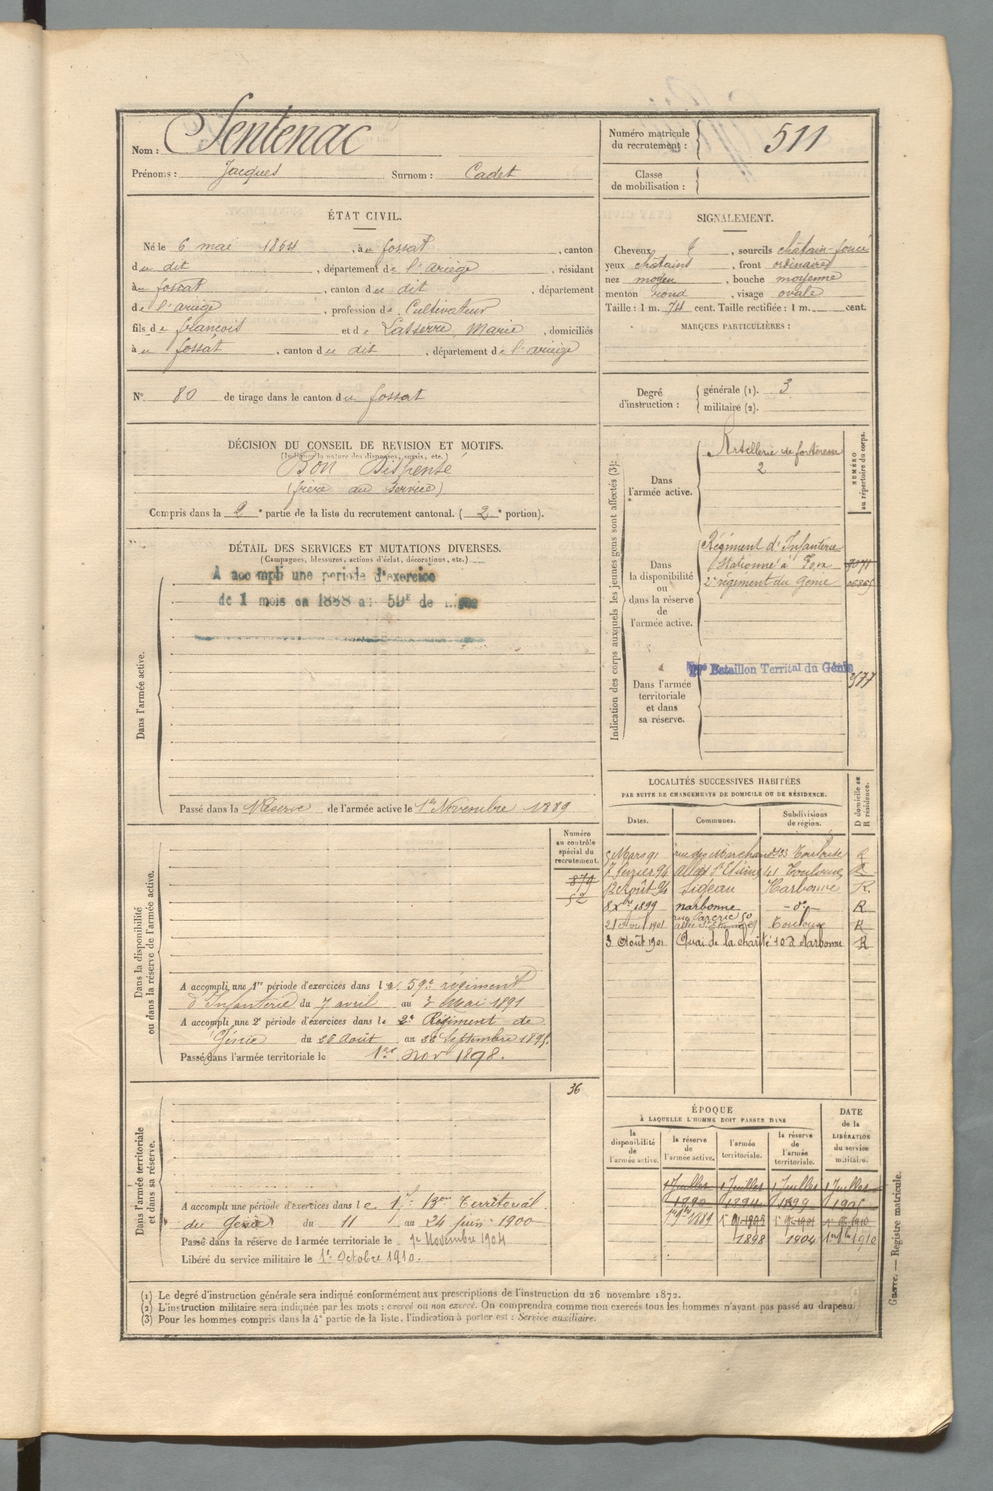 Nom : Sentenac
Prénoms : Jacques Surnom : Cadet
Numéro matricule du recrutement : 511
Classe de mobilisation :
ÉTAT CIVIL.
Né le 6 mai 1864, à u fossat, canton
du dit, département de l'ariège, résidant
à u fossat, canton du dit, département
de l'ariège, profession de Cultivateur
fils de françois et de Lasserre Marie, domiciliés
à u fossat, canton du dit, département de l'ariège
N° 80 de tirage dans le canton du fossat
SIGNALEMENT.
Cheveux &, sourcils châtain-foncé
yeux châtains, front ordinaire
nez moyen, bouche moyenne
menton rond, visage ovale
Taille : 1 m. 74 cent. Taille rectifiée : 1 m. cent.
MARQUES PARTICULIÈRES :
Degré d'instruction : générale (1). 3
militaire (2).
DÉCISION DU CONSEIL DE REVISION ET MOTIFS.
(Indiquer la nature des dispenses, sursis, etc.)
Bon Dispensé
(frère au Service)
Compris dans la 2e partie de la liste du recrutement cantonal. (2e portion).
DÉTAIL DES SERVICES ET MUTATIONS DIVERSES.
(Campagnes, blessures, actions d'éclat, décorations, etc.)
Dans l'armée active.
A accompli une période d'exercice
de 1 mois en 1888 au 59e de ligne
Passé dans la Réserve de l'armée active le 1er Novembre 1889
Indication des corps auxquels les jeunes gens sont affectés (3):
NUMÉRO au répertoire du corps.
Dans l'armée active.
Artillerie de forteresse
2
Dans la disponibilité ou dans la réserve de l'armée active.
Régiment d'Infanterie
Stationné à Foix
2e régiment du Génie
Dans l'armée territoriale et dans sa réserve.
17me Bataillon Territal du Génie
LOCALITÉS SUCCESSIVES HABITÉES
PAR SUITE DE CHANGEMENTS DE DOMICILE OU DE RÉSIDENCE.
Dates. Communes. Subdivisions de région. D domicile ou R résidence.
5 Mars 91 rue des Marchands 33 Toulouse R
7 février 94 allée St Etienne 41 Toulouse R
12 Août 94 Sigean Narbonne R
8 Xbre 1899 narbonne - do - R
21 1901 Toulouse R
3 Août 1901 Quai de la charité 10 Narbonne R
Dans la disponibilité ou dans la réserve de l'armée active.
Numéro au contrôle spécial du recrutement.
879
52
A accompli une 1re période d'exercices dans le 59e régiment
d'Infanterie du 7 avril au 4 Mai 1891
A accompli une 2e période d'exercices dans le 2e Régiment de
Génie du 28 août au 26 Septembre 1895.
Passé dans l'armée territoriale le 1er nov. 1898.
Dans l'armée territoriale et dans sa réserve.
36
A accompli une période d'exercices dans le 17me Bon Territorial
du Génie du 11 au 24 juin 1900
Passé dans la réserve de l'armée territoriale le 1er Novembre 1904
Libéré du service militaire le 1er Octobre 1910.
ÉPOQUE
À LAQUELLE L'HOMME DOIT PASSER DANS
la disponibilité de l'armée active. la réserve de l'armée active. l'armée territoriale. la réserve de l'armée territoriale. DATE de la LIBÉRATION du service militaire.
1 Juillet 1 Juillet 1 Juillet 1 Juillet
1890 1894 1899 1905
1889
1898 1904 1910
(1) Le degré d'instruction générale sera indiqué conformément aux prescriptions de l'instruction du 26 novembre 1872.
(2) L'instruction militaire sera indiquée par les mots : exercé ou non exercé. On comprendra comme non exercés tous les hommes n'ayant pas passé au drapeau.
(3) Pour les hommes compris dans la 4e partie de la liste, l'indication à porter est : Service auxiliaire.
Guerre. — Registre matricule.